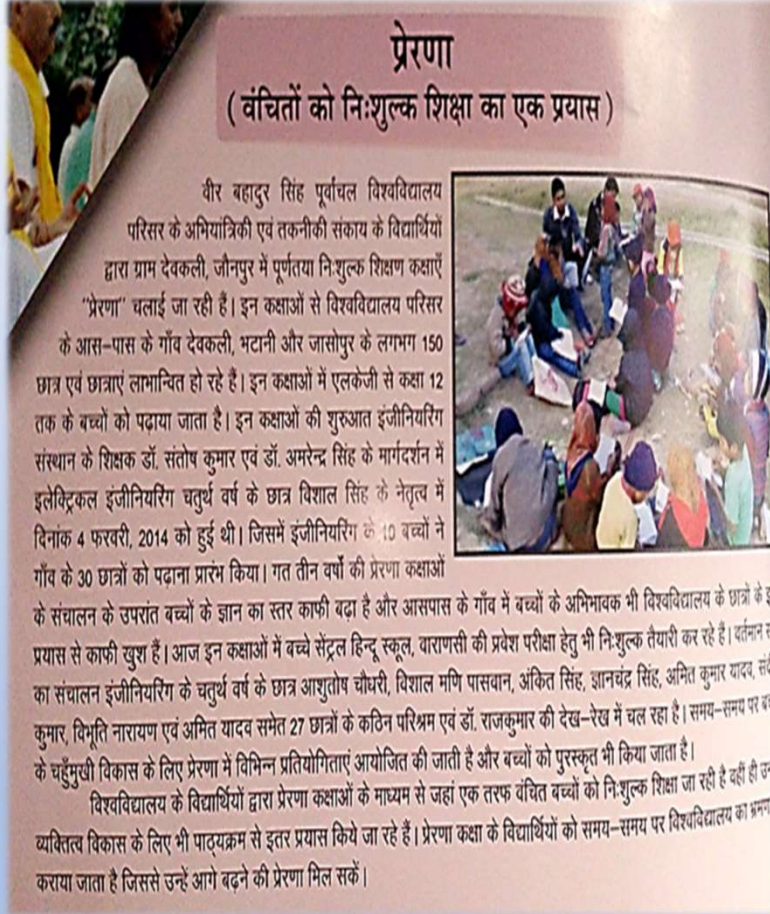 प्रेरणा
( वंचितों को निःशुल्क शिक्षा का एक प्रयास )
वीर बहादुर सिंह पूर्वांचल विश्वविद्यालय
परिसर के अभियांत्रिकी एवं तकनीकी संकाय के विद्यार्थियों
द्वारा ग्राम देवकली, जौनपुर में पूर्णतया निःशुल्क शिक्षण कक्षाएँ
"प्रेरणा" चलाई जा रही है। इन कक्षाओं से विश्वविद्यालय परिसर
के आस-पास के गाँव देवकली, भटानी और जासोपुर के लगभग 150
छात्र एवं छात्राएं लाभान्वित हो रहे है। इन कक्षाओं में एलकेजी से कक्षा 12
तक के बच्चों को पढ़ाया जाता है। इन कक्षाओं की शुरुआत इंजीनियरिंग
संस्थान के शिक्षक डॉ. संतोष कुमार एवं डॉ. अमरेन्द्र सिंह के मार्गदर्शन में
इलेक्ट्रिकल इंजीनियरिंग चतुर्थ वर्ष के छात्र विशाल सिंह के नेतृत्व में
दिनांक 4 फरवरी, 2014 को हुई थी। जिसमें इंजीनियरिंग के 10 बच्चों ने
गाँव के 30 छात्रों को पढ़ाना प्रारंभ किया। गत तीन वर्षों की प्रेरणा कक्षाओं
के संचालन के उपरांत बच्चों के ज्ञान का स्तर काफी बढ़ा है और आसपास के गाँव में बच्चों के अभिभावक भी विश्वविद्यालय के छात्रों के
प्रयास से काफी खुश हैं। आज इन कक्षाओं में बच्चे सेंट्रल हिन्दू स्कूल, वाराणसी की प्रवेश परीक्षा हेतु भी निःशुल्क तैयारी कर रहे हैं। वर्तमान
का संचालन इंजीनियरिंग के चतुर्थ वर्ष के छात्र आशुतोष चौधरी, विशाल मणि पासवान, अंकित सिंह, ज्ञानचंद्र सिंह, अमित कुमार यादव,
कुमार, विभूति नारायण एवं अमित यादव समेत 27 छात्रों के कठिन परिश्रम एवं डॉ. राजकुमार की देख-रेख में चल रहा है। समय-समय पर
के चहुँमुखी विकास के लिए प्रेरणा में विभिन्न प्रतियोगिताएं आयोजित की जाती है और बच्चों को पुरस्कृत भी किया जाता है।
विश्वविद्यालय के विद्यार्थियों द्वारा प्रेरणा कक्षाओं के माध्यम से जहां एक तरफ वंचित बच्चों को निःशुल्क शिक्षा जा रही है वहीं ही
व्यक्तित्व विकास के लिए भी पाठ्यक्रम से इतर प्रयास किये जा रहे हैं। प्रेरणा कक्षा के विद्यार्थियों को समय-समय पर विश्वविद्यालय का भ्रमण
कराया जाता है जिससे उन्हें आगे बढ़ने की प्रेरणा मिल सकें।